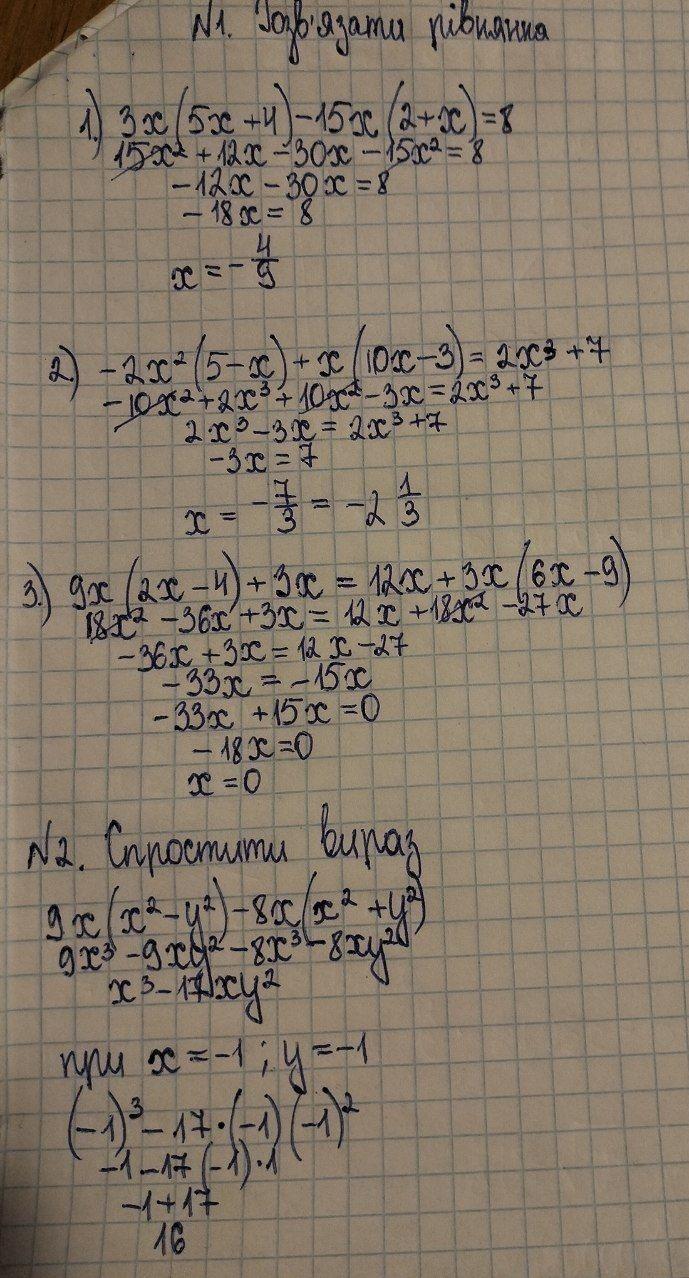 №1. Розв'язати рівняння
1.) 3x(5x+4)-15x(2+x)=8
15x²+12x-30x-15x²=8
-12x-30x=8
-18x=8
x=-4/9
2.) -2x²(5-x)+x(10x-3)=2x³+7
-10x²+2x³+10x²-3x=2x³+7
2x³-3x=2x³+7
-3x=7
x=-7/3=-2 1/3
3.) 9x(2x-4)+3x=12x+3x(6x-9)
18x²-36x+3x=12x+18x²-27x
-36x+3x=12x-27
-33x=-15x
-33x+15x=0
-18x=0
x=0
№2. Спростити вираз
9x(x²-y²)-8x(x²+y²)
9x³-9xy²-8x³-8xy²
x³-17xy²
при x=-1; y=-1
(-1)³-17·(-1)(-1)²
-1-17(-1)·1
-1+17
16